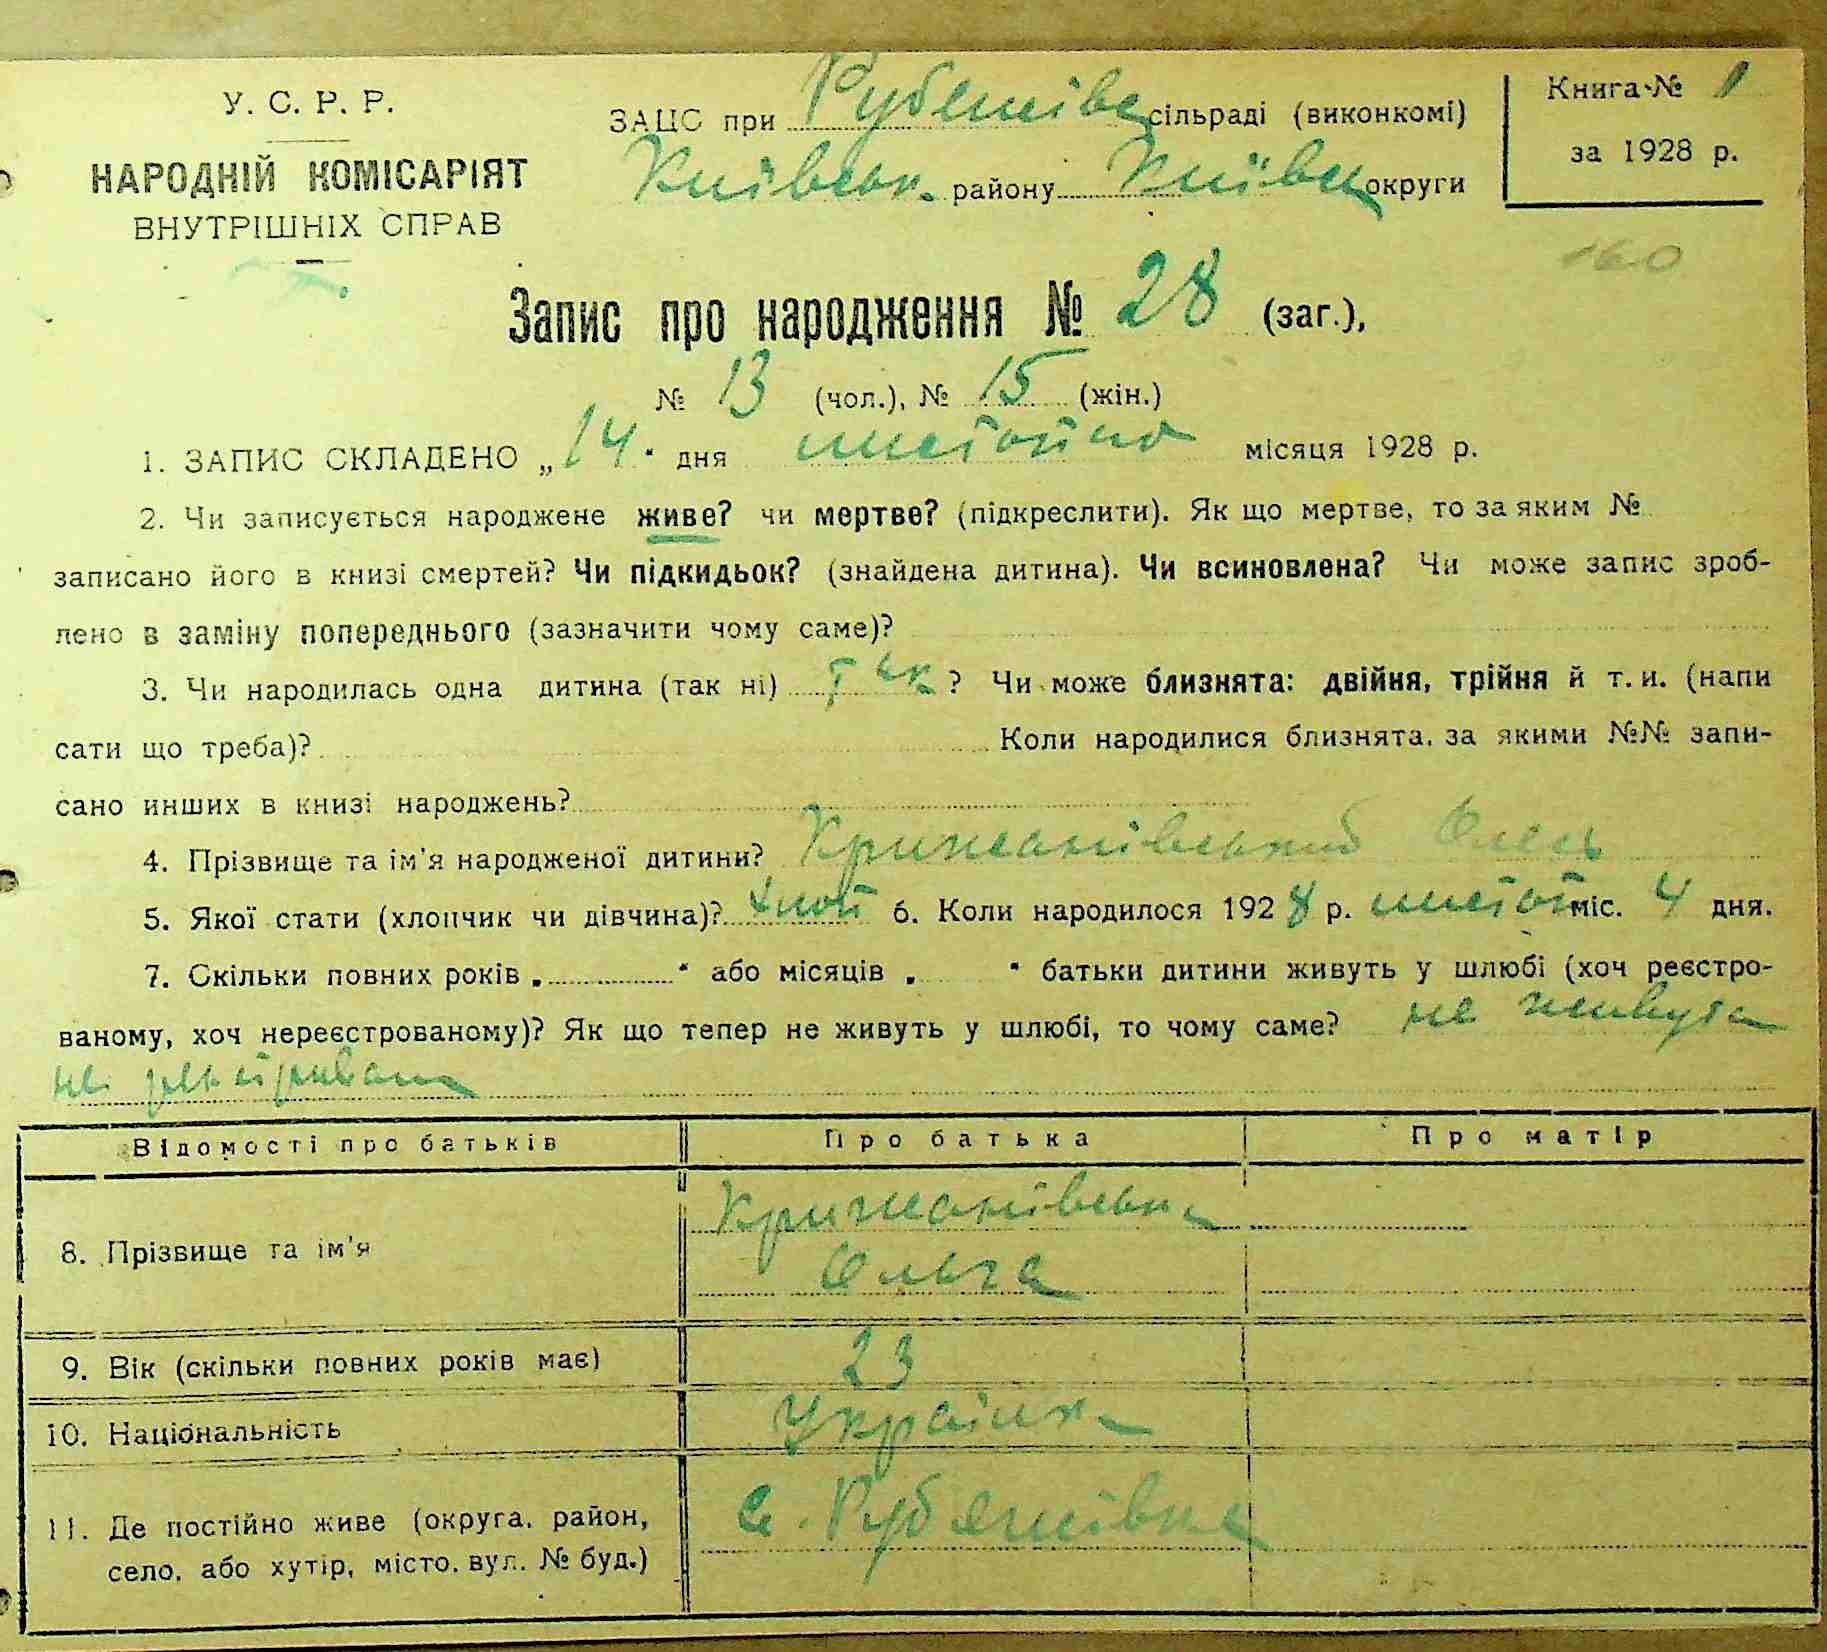 У. С. Р. Р.
НАРОДНІЙ КОМІСАРІЯТ
ВНУТРІШНІХ СПРАВ
ЗАЦС при Рубежівс сільраді (виконкомі)
Київськ. району Київськ округи
Книга № 1
за 1928 р.
160
Запис про народження № 28 (заг.),
№ 13 (чол.), № 15 (жін.)
1. ЗАПИС СКЛАДЕНО „14" дня листопада місяця 1928 р.
2. Чи записується народжене живе? чи мертве? (підкреслити). Як що мертве, то за яким №
записано його в книзі смертей? Чи підкидьок? (знайдена дитина). Чи всиновлена? Чи може запис зроб-
лено в заміну попереднього (зазначити чому саме)?
3. Чи народилась одна дитина (так ні) так ? Чи може близнята: двійня, трійня й т. и. (напи
сати що треба)? Коли народилися близнята, за якими №№ запи-
сано инших в книзі народжень?
4. Прізвище та ім'я народженої дитини? Крижанівський Олесь
5. Якої стати (хлопчик чи дівчина)? хлоп 6. Коли народилося 1928 р. листоп міс. 4 дня.
7. Скільки повних років „ " або місяців „ " батьки дитини живуть у шлюбі (хоч реєстро-
ваному, хоч нереєстрованому)? Як що тепер не живуть у шлюбі, то чому саме? не живута
не
Відомості про батьків Про батька Про матір
8. Прізвище та ім'я Крижанівська
Ольга
9. Вік (скільки повних років має) 23
10. Національність Українка
11. Де постійно живе (округа, район,
село, або хутір, місто, вул. № буд.) с. Рубежівка